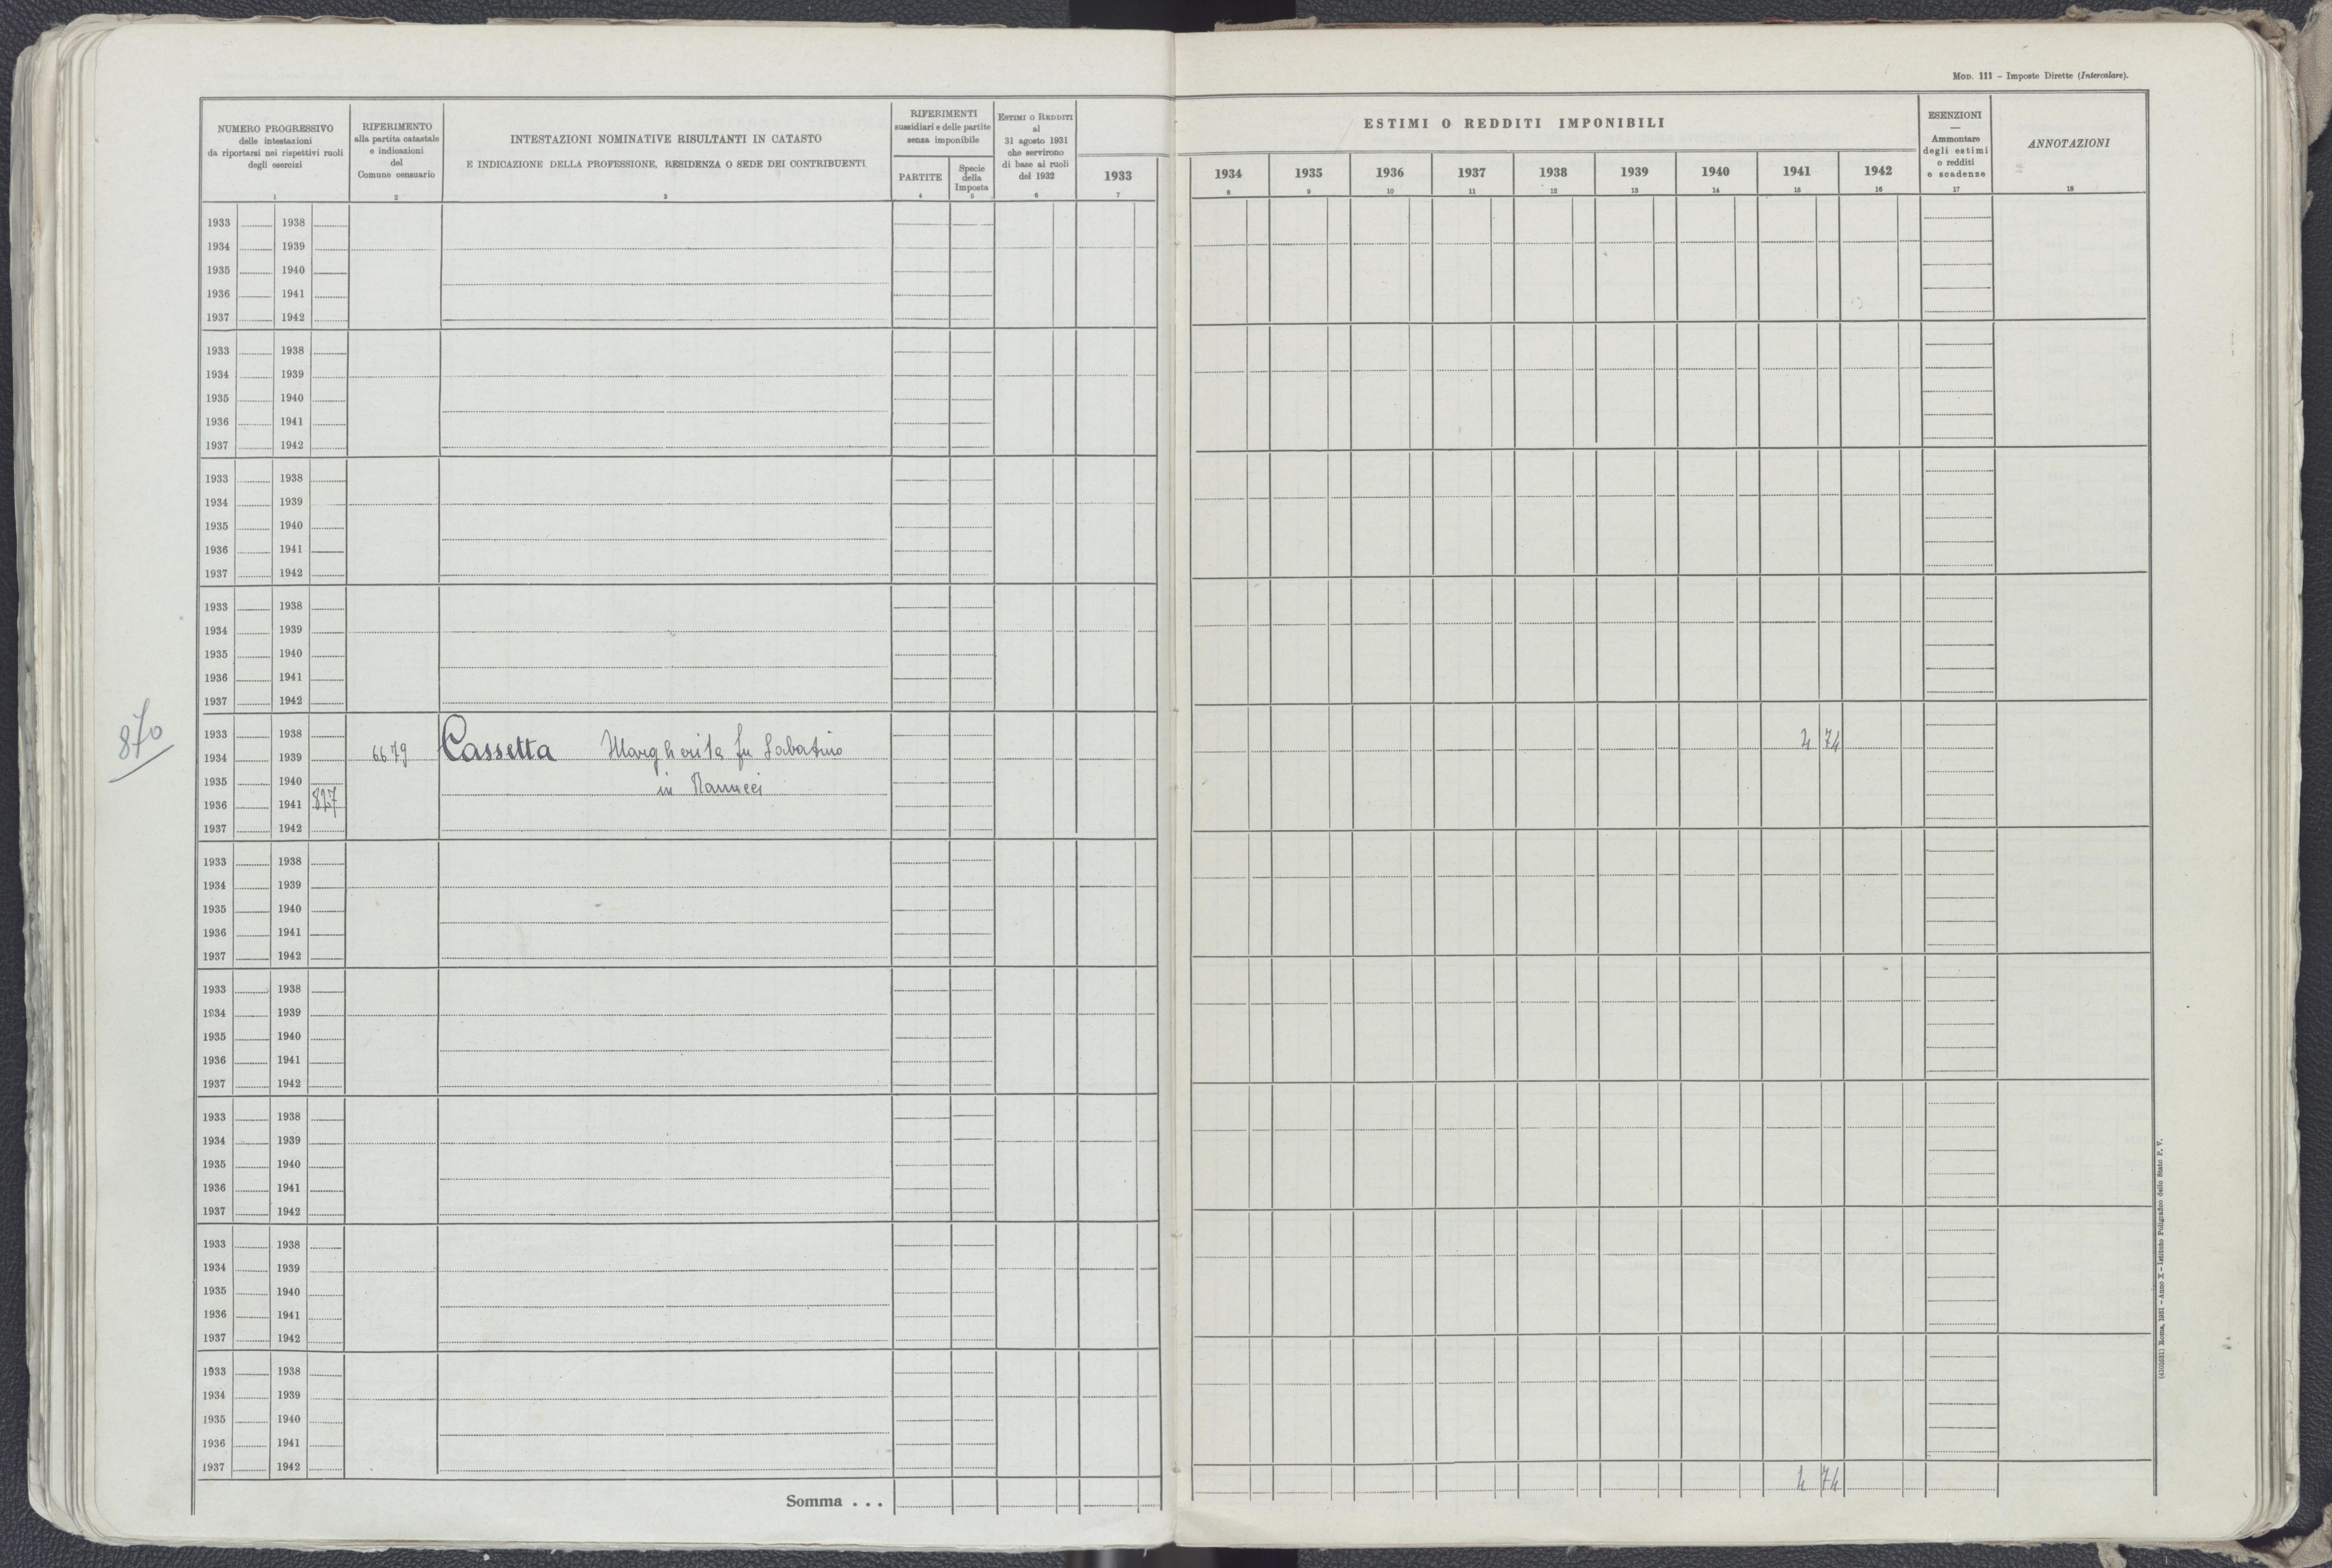 Mod. 111 – Imposte Dirette (Intercalare).
NUMERO PROGRESSIVO
delle intestazioni
da riportarsi nei rispettivi ruoli
degli esercizi
1
RIFERIMENTO
alla partita catastale
e indicazioni
del
Comune censuario
2
INTESTAZIONI NOMINATIVE RISULTANTI IN CATASTO
E INDICAZIONE DELLA PROFESSIONE, RESIDENZA O SEDE DEI CONTRIBUENTI
3
RIFERIMENTI
sussidiari e delle partite
senza imponibile
PARTITE
4
Specie
della
Imposta
5
Estimi o Redditi
al
31 agosto 1931
che servirono
di base ai ruoli
del 1932
6
1933
7
ESTIMI O REDDITI IMPONIBILI
1934 1935 1936 1937 1938 1939 1940 1941 1942
8 9 10 11 12 13 14 15 16
ESENZIONI
—
Ammontare
degli estimi
o redditi
e scadenze
17
ANNOTAZIONI
18
1933 1938
1934 1939
1935 1940
1936 1941
1937 1942
1933 1938
1934 1939
1935 1940
1936 1941
1937 1942
1933 1938
1934 1939
1935 1940
1936 1941
1937 1942
1933 1938
1934 1939
1935 1940
1936 1941
1937 1942
870
1933 1938
1934 1939 6679 Cassetta Margherita fu Sabatino 4 74
1935 1940 in Nannucci
1936 1941 827
1937 1942
1933 1938
1934 1939
1935 1940
1936 1941
1937 1942
1933 1938
1934 1939
1935 1940
1936 1941
1937 1942
1933 1938
1934 1939
1935 1940
1936 1941
1937 1942
1933 1938
1934 1939
1935 1940
1936 1941
1937 1942
1933 1938
1934 1939
1935 1940
1936 1941
1937 1942
Somma . . . 4 74
Roma, 1931 – Anno X – Istituto Poligrafico dello Stato P. V.